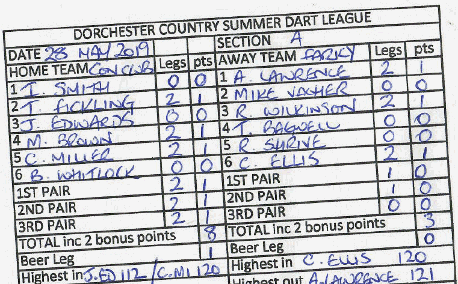 DORCHESTER COUNTRY SUMMER DART LEAGUE
DATE 28 MAY 2019 Legs pts SECTION A Legs pts
HOME TEAM CON CLUB AWAY TEAM PARKY
1 I. SMITH 0 0 1 A. LAWRENCE 2 1
2 T. FICKLING 2 1 2 MIKE VACHER 0 0
3 J. EDWARDS 0 0 3 R WILKINSON 2 1
4 M. BROWN 2 1 4 T. BAGWELL 0 0
5 C. MILLER 2 1 5 R. SHRIVE 0 0
6 B. WHITLOCK 0 0 6 C. ELLIS 2 1
1ST PAIR 2 1 1ST PAIR 1 0
2ND PAIR 2 1 2ND PAIR 1 0
3RD PAIR 2 1 3RD PAIR 0 0
TOTAL inc 2 bonus points 8 TOTAL inc 2 bonus points 3
Beer Leg 1 Beer Leg 0
Highest in J.ED 112 / C.MI 120 Highest in C. ELLIS 120
Highest out A. LAWRENCE 121